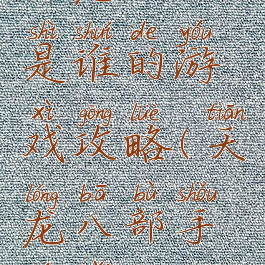 shì shuí de yóu
是谁的游
xì gōng lüè tiān
戏攻略(天
lóng bā bù shǒu
龙八部手